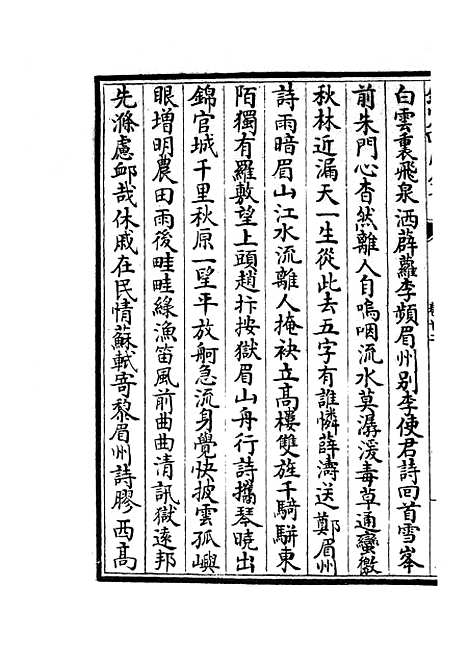 白雲裏飛泉洒薜蘿李頻眉州别李使君詩回首雪峯
前朱門心杳然離人自嗚咽流水莫潺湲毒草通蠻徼
秋林近漏天一生從此去五字有誰憐薛濤送鄭眉州
詩雨暗眉山江水流離人掩袂立高樓雙旌千騎駢東
陌獨有羅敷望上頭趙抃按獄眉山舟行詩攜琴曉出
錦官城千里秋原一朢平放舸急流身覺快披雲孤嶼
眼增明農田雨後畦畦緑漁笛風前曲曲清訊獄遠邦
先滌慮䘏哉休戚在民情蘇軾寄黎眉州詩膠西高